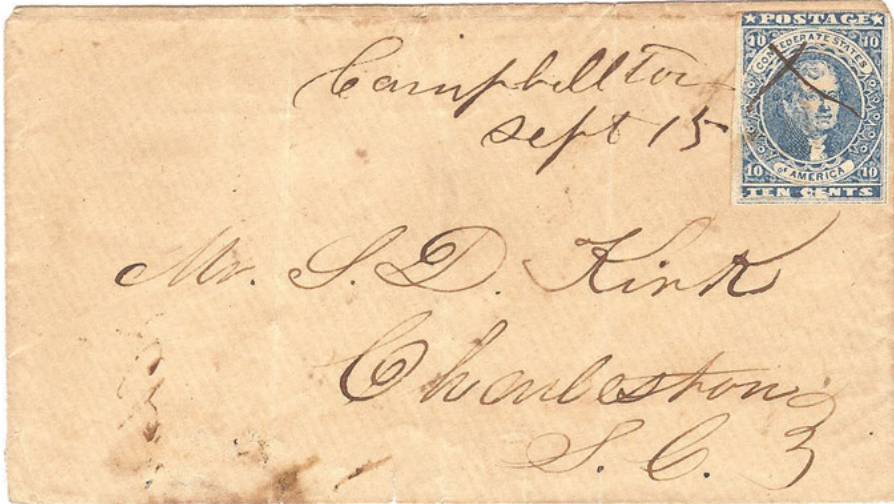 Campbellton
Sept 15
★POSTAGE★
10 10
CONFEDERATE STATES
10 10
of AMERICA
TEN CENTS
Mr. S. D. Kirk
Charleston
S. C.